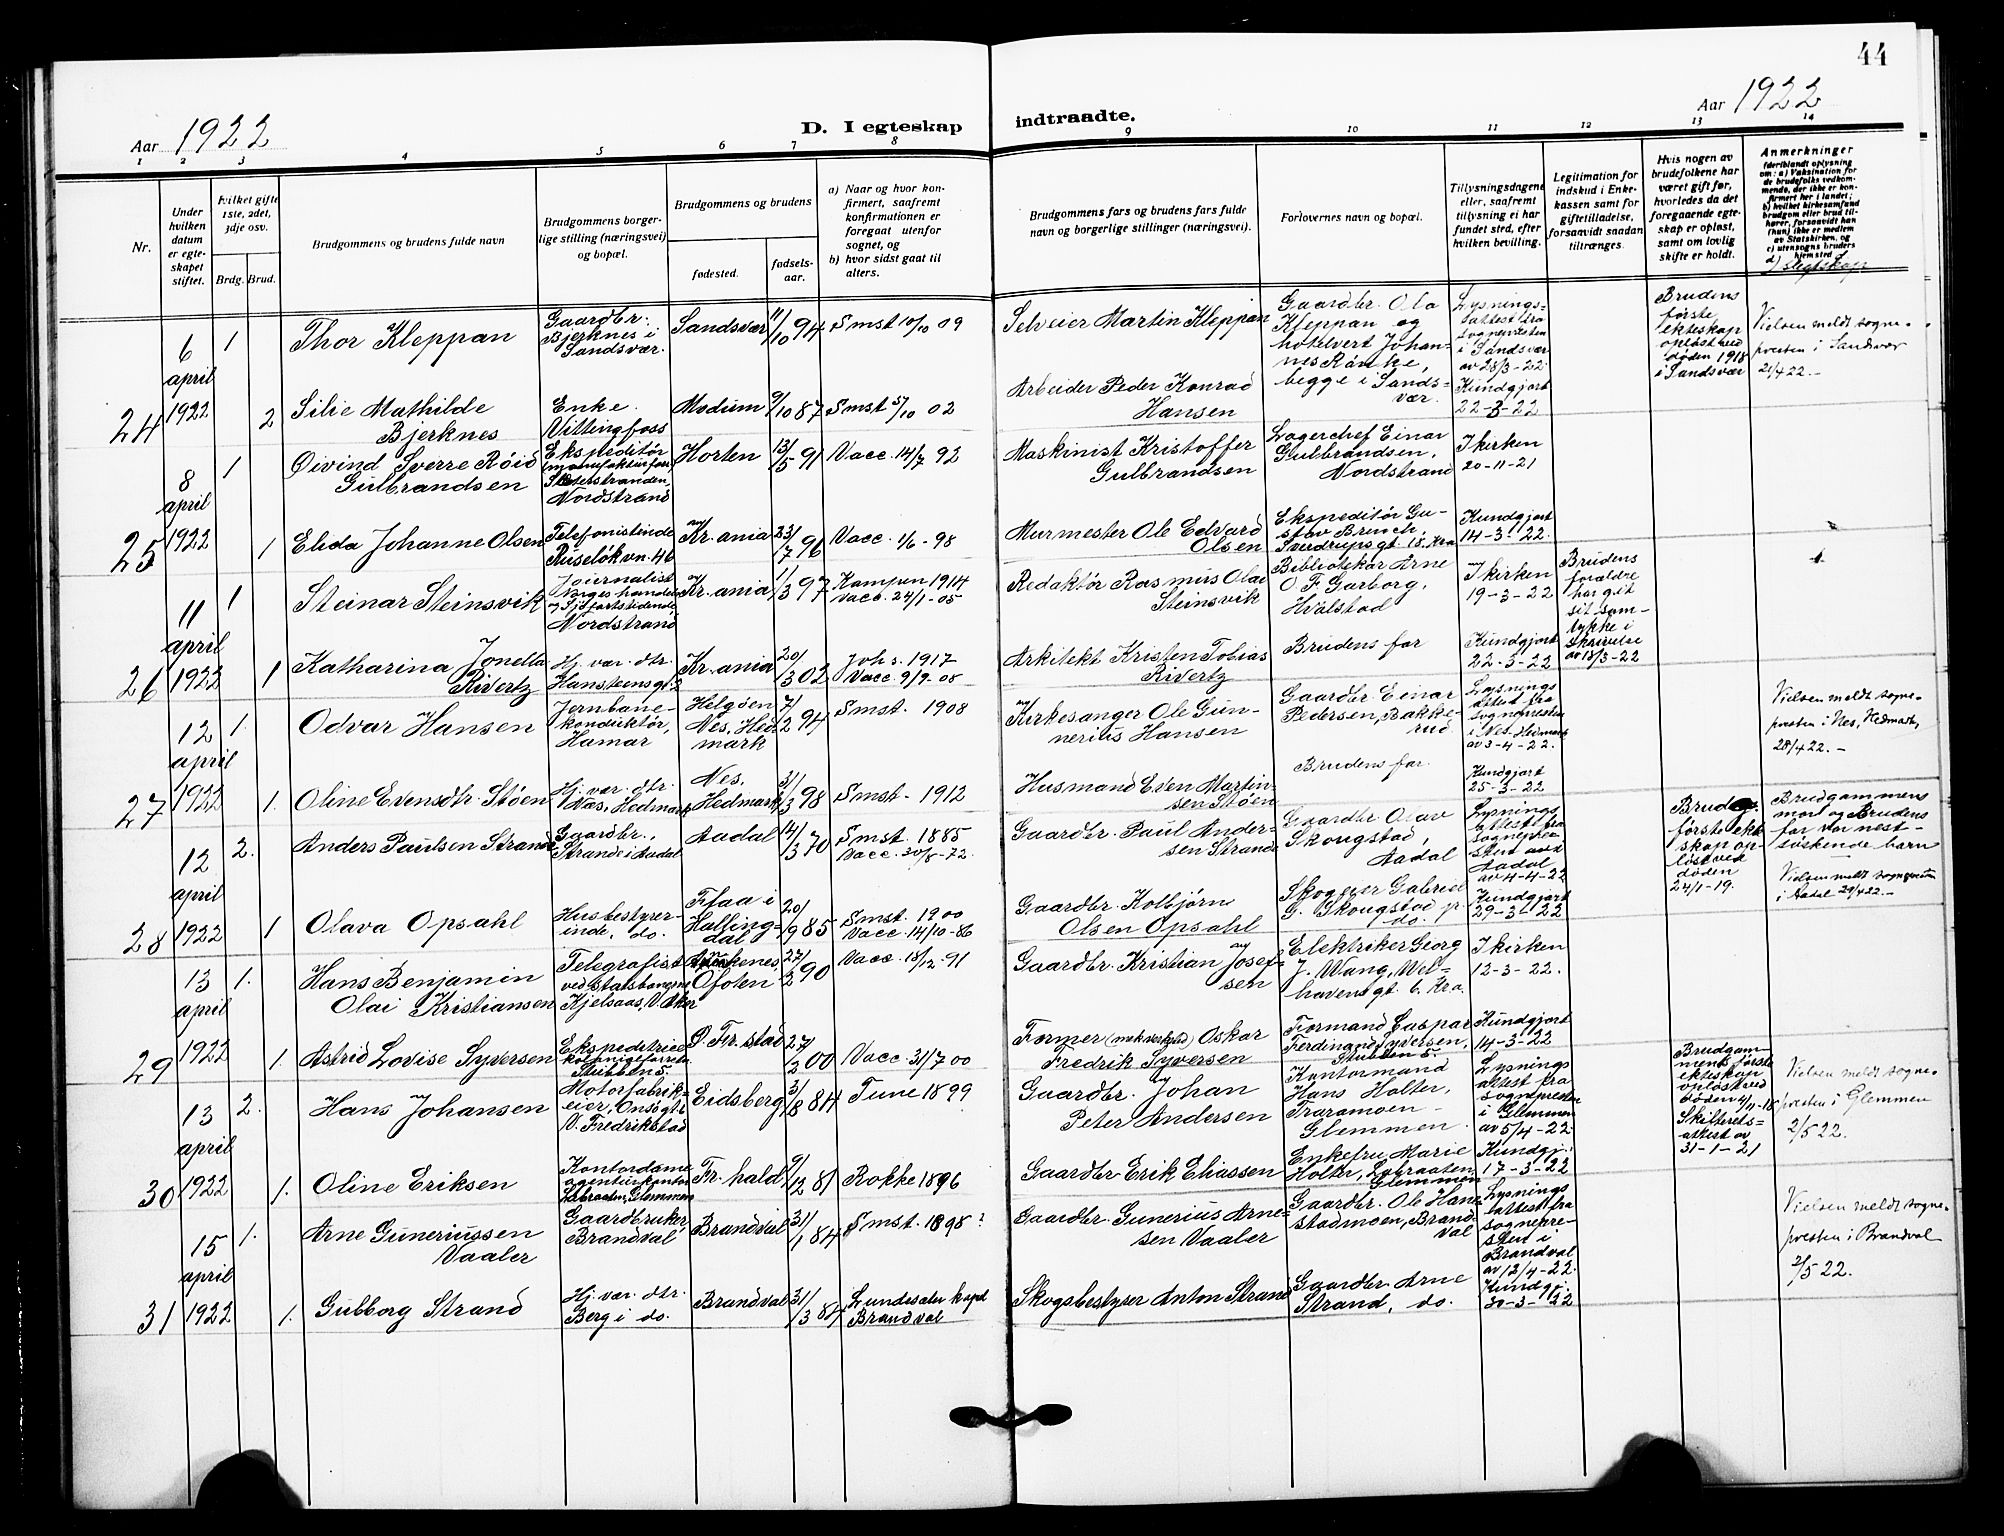 44
Aar 1922
D. I egteskap
indtraadte.
Aar 1922
1 2 3 4 5 6 7 8 9 10 11 12 13 14
Nr.
Under hvilken datum er egteskapet stiftet.
hvilket gifte 1ste, 2det, 3dje osv.
Brdg. Brud.
Brudgommens og brudens fulde navn
Brudgommens borgerlige stilling (næringsvei) og bopæl.
Brudgommens og brudens
fødested.
fødselsaar.
a) Naar og hvor konfirmert, saafremt konfirmationen er foregaat utenfor sognet, og
b) hvor sidst gaat til alters.
Brudgommens fars og brudens fars fulde navn og borgerlige stillinger (næringsvei).
Forlovernes navn og bopæl.
Tillysningsdagene eller, saafremt tillysning ei har fundet sted, efter hvilken bevilling.
Legitimation for indskud i Enkekassen samt for giftetilladelse, forsaavidt saadan tiltrænges.
Hvis nogen av brudefolkene har været gift før, hvorledes da det foregaaende egteskap er opløst, samt om lovlig skifte er holdt.
Anmerkninger
(deriblandt oplysning om: a) Vaksination for de brudefolks vedkommende, der ikke er konfirmert her i landet; b) hvilket kirkesamfund brudgom eller brud tilhører, forsaavidt han (hun) ikke er medlem av Statskirken, og c) utensogns bruders hjemsted
d) slegtskap
24
6 april 1922
1
Thor Kleppan
Gaardbr. Bjerknes i Sandsvær.
Sandsvær
11/10 94
Smst 10/10 09
Selveier Martin Kleppan
Gaardbr. Ola Kleppan og hotelvert Johannes Rånke, begge i Sandsvær.
Lysningsattest fra sognepresten i Sandsvær av 28/3-22.
Brudens første ekteskap opløst ved døden 1918 i Sandsvær
Vielsen meldt sognepresten i Sandsvær 21/4 22.-
2
Silie Mathilde Bjerknes
Enke. Vittingfoss
Modum
9/10 87
Smst 5/10 02
Arbeider Peder Konrad Hansen
Kundgjort 22-3-22
25
8 april 1922
1
Øivind Sverre Róid Gulbrandsen
Ekspeditör Nordstrand
Horten
13/5 91
Vacc. 14/7 92
Maskinist Kristoffer Gulbrandsen
Lagerchef Einar Gulbrandsen, Nordstrand
I kirken 20-11-21
1
Elida Johanne Olsen
Telefonistinde Ruseløkvn. 46
Kr.ania
23/7 96
Vacc. 1/6-98
Murmester Ole Edvard Olsen
Ekspeditör Gustav Brunck, Sverdrupsgt 18. Kra
Kundgjort 14-3-22.
26
11 april 1922
1
Steinar Steinsvik
Journalist Norges handels og Sjøfartstidende, Nordstrand
Kr.ania
1/3 97
Kampen 1914
Vacc. 24/1-05
Redaktör Rasmus Olai Steinsvik
Bibliotekar Arne O F. Garborg, Hvalstad
I kirken 19-3-22
Brudens forældre har git sit samtykke i skrivelse av 18/3-22
1
Katharina Jonetta Rivertz
Hj. vær. dtr. Hansteensgt. 2
Kr.ania
20/3 02
Joh s. 1917
Vacc. 9/9-08
Arkitekt Kristen Tobias Rivertz
Brudens far
Kundgjort 22-3-22
27
12 april 1922
1.
Odvar Hansen
Jernbanekonduktör, Hamar
Helgöen Nes, Hedmark
7/2 94
Smst. 1908
Kirkesanger Ole Gunnerius Hansen
Gaardbr Einar Pedersen, Bakkerud
Lysningsattest fra sognepresten i Nes, Hedmark av 3-4-22.
Vielsen meldt sognepresten i Nes, Hedmark, 28/4 22.-
1.
Oline Evensdtr. Støen
Hj. vær. dtr. Nes, Hedmark
Nes, Hedmark
31/3 98
Smst- 1912
Husmand Even Martinsen Støen
Brudens far.
Kundgjort 25-3-22
28
12 april 1922
2.
Anders Paulsen Strande
Gaardbr., Strande i Aadal
Aadal
14/3 70
Smst. 1885
Vacc. 30/8-72.
Gaardbr. Paul Andersen Strande
Gaardbr Olav Skougstad, Aadal
Lysningsattest fra sognepresten Aadal av 4-4-22
Brudg. første ekteskap opløst ved døden 24/1-19.
Brudgommens mor og Brudens far var nestsöskende barn
Vielsen meldt sognepresten i Aadal 29/4 22.-
1
Olava Opsahl
Husbestyrerinde, do.
Flaa i Hallingdal
20/9 85
Smst. 1900
Vacc. 14/10-86
Gaardbr. Kolbjörn Olsen Opsahl
Skogeier Gabriel G. Skougstad do.
Kundgjort 29-3-22
29
13 april 1922
1.
Hans Benjamin Olai Kristiansen
Telegrafist ved Statsbanerne Kjelsaas, V. Aker
Ankenes, Ofoten
27/2 90
Vacc 18/12-91
Gaardbr. Kristian Josefsen
Elektriker Georg J. Wang, Welhavensgt 6. Kra.
I kirken 12-3-22.
1.
Astrid Lovise Syversen
Ekspeditrice kolonialforretn. Stubben 5.
P. Fr. stad
27/2 00
Vacc 31/7 00
Former (mek verksted) Oskar Fredrik Syversen
Formand Caspar Ferdinand Syversen, Stubben 5.
Kundgjort 14-3-22
30
13 april 1922
2.
Hans Johansen
Motorfabrikeier, Onsögt. 2 V. Fredrikstad
Eidsberg
3/8 84
Tune 1899
Gaardbr. Johan Peter Andersen
Kontormand Hans Holter, Traramoen - Glemmen.
Lysningsattest fra sognepresten i Glemmen av 5/4-22.
Brudgommens første ekteskap opløst ved døden 4/11-18 Skifteretsattest av 31-1-21
Vielsen meldt sognepresten i Glemmen 2/5 22.
1.
Oline Eriksen
Kontordame agenturkontor Labraaten, Glemmen
Fr. hald
9/12 81
Rokke 1896
Gaardbr Erik Eliassen
Enkefru Marie Holter, Labraaten, Glemmen
Kundgj. 17-3-22
31
15 april 1922
1.
Arne Guneriussen Vaaler
Gaardbruker, Brandval
Brandval
31/1 84
Smst. 1898?
Gaardbr. Gunerius Arnesen Vaaler
Gaardbr. Ole Hanestadmoen, Brandval
Lysningsattest fra sognepresten i Brandval av 12/4-22.
Vielsen meldt sognepresten i Brandval 2/5 22.
1.
Gubborg Strand
Hj. vær. dtr. Berg i do.
Brandval
31/3 84
Lundersæter kapel Brandval
Skogsbestyrer Anton Strand
Gaardbr. Arne Strand, do.
Kundgj. 30-3-22